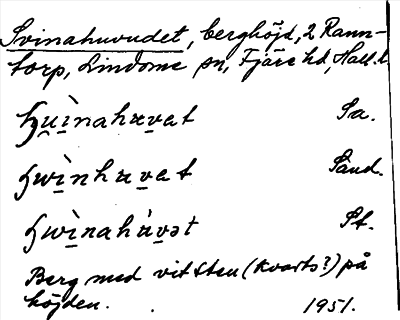 Svinahuvudet, berghöjd, 2 Rann-
torp, Lindome sn, Fjäre hd, Hall. l.
hu̯ìnahʉvat Sa.
hwìnhʉvat Sand.
hwìnahʉ̀vət St.
Berg med vit sten (kvarts?) på
höjden. 1951.